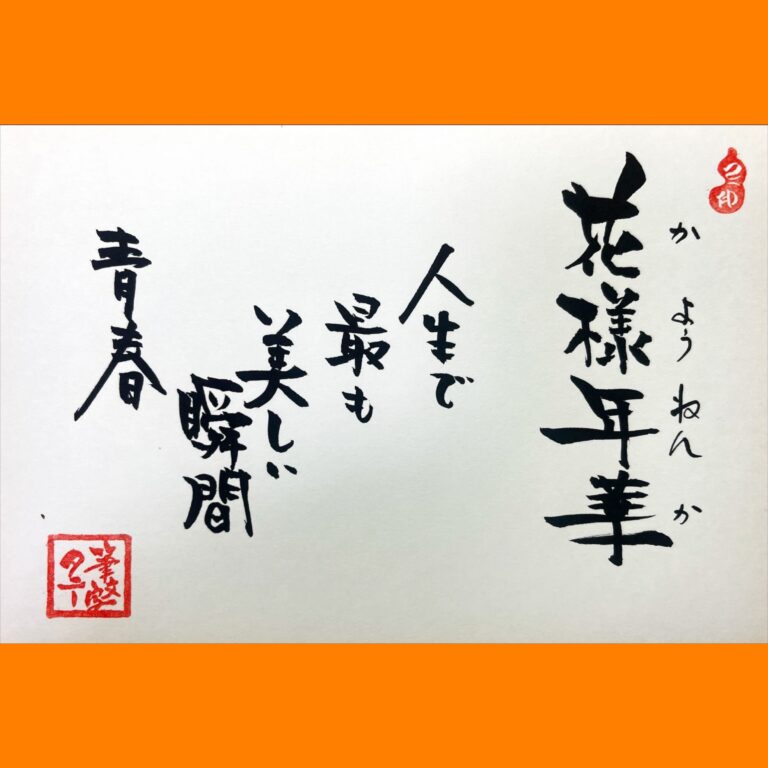 花様年華
かようねんか
人生で
最も
美しい
瞬間
青春